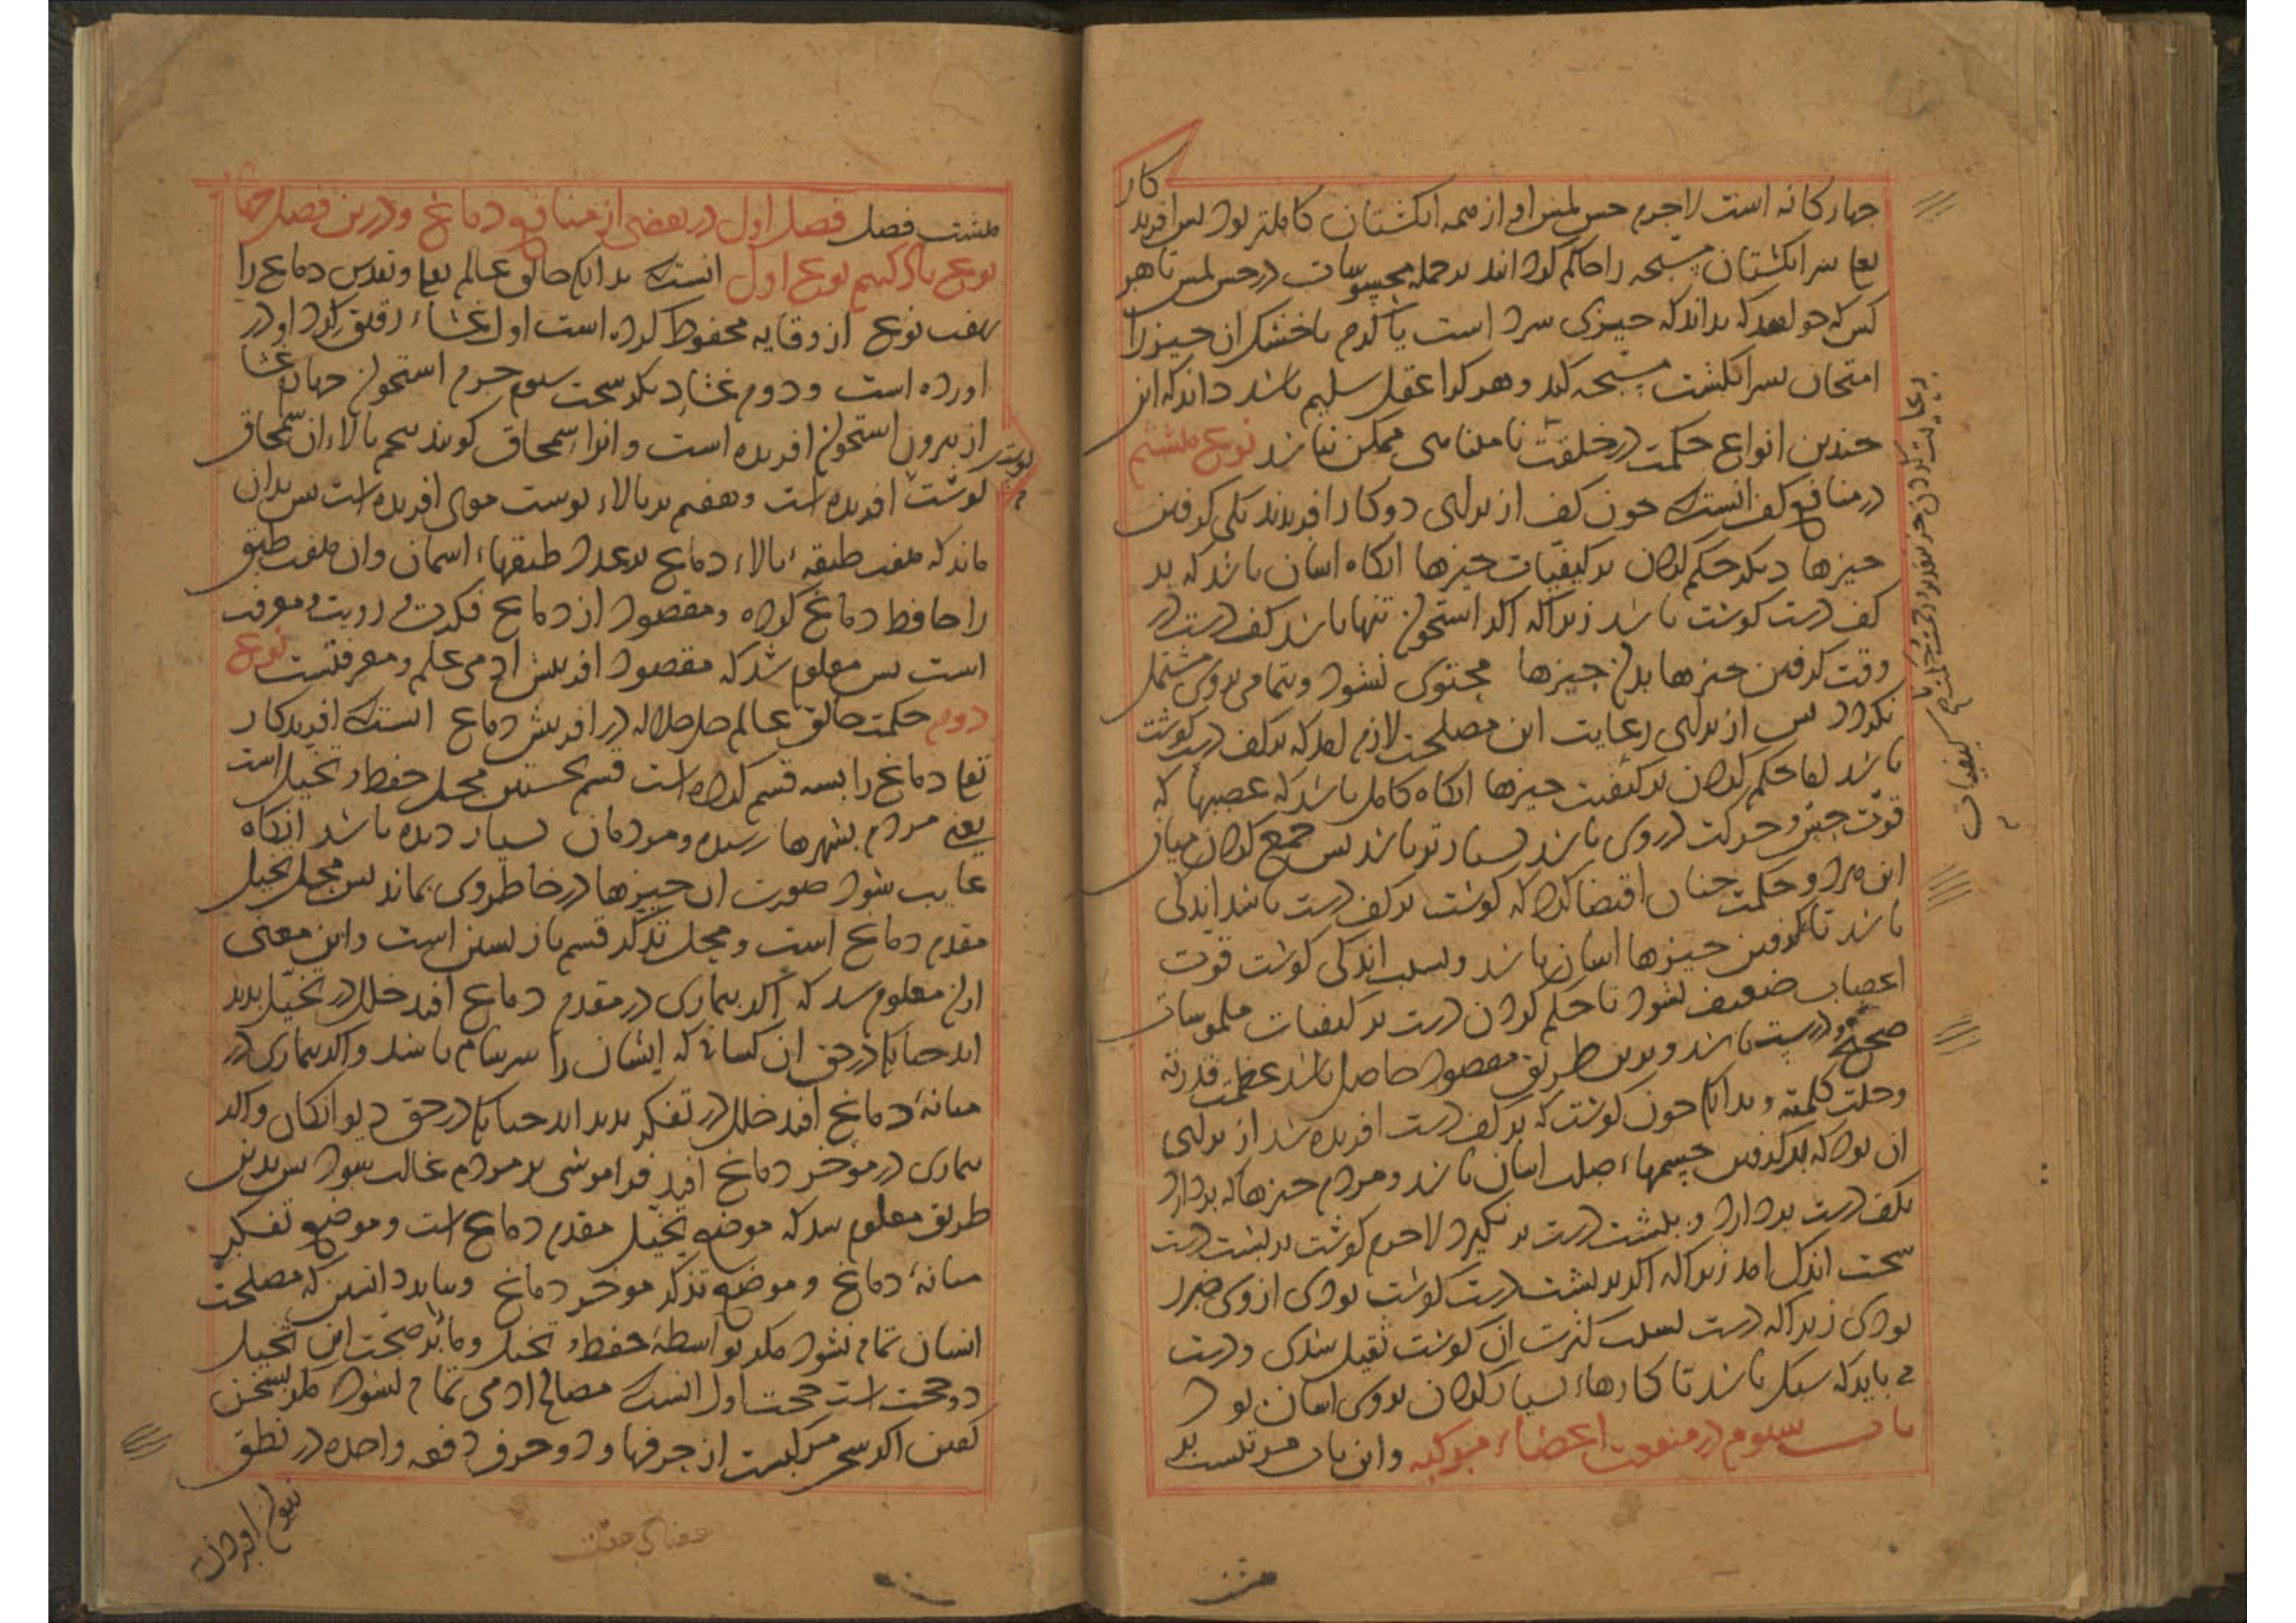 چهارکانه است لاجرم حس لمس او از همه انکشتان کاملتر بود پس افریدکار
تعا سر انکشتان مسبحه را حاکم کردانید بر جمله محسوسات در حس لمس تا هر
کس که خواهد که بداند که چیزی سرد است یا کرم یا خشک ان چیز را
امتحان بسر انکشت مسبحه کند و هر کرا عقل سلیم باشد داند که این
چندین انواع حکمت در خلقت نامتناهی ممکن نباشد نوع هشتم
در منافع کف انست که چون کف از برای دو کار افریدند یکی کرفتن
چیزها دیکر حکم کردن بر کیفیات چیزها انکاه اسان باشد که بر
کف دست کوشت باشد زیراکه اکر استخوان تنها باشد کف دست در
وقت کرفتن چیزها بدان چیزها محتوی نشود و بتمامی بروی مشتمل
نکردد پس از برای رعایت این مصلحت لازم امد که بر کف دست کوشت
باشد اما حکم کردن بر کیفیت چیزها انکاه کامل باشد که عصبها که
قوت حس و حرکت در وی باشد بسیارتر باشد پس جمع کردن میان
این هر دو حکمت چنان اقتضا کرد که کوشت بر کف دست باشد اندکی
باشد تا کرفتن چیزها اسان باشد و بسبب اندکی کوشت قوت
اعصاب ضعیف نشود تا حکم کردن دست بر کیفیات ملموسات
صحیح و درست باشد و بدین طریق مقصود حاصل باشد عظمت قدرته
وجلت کلمته و بدانکه چون کوشت که بر کف دست افریده شد از برای
ان بود که بر کرفتن جسمهاء صلب اسان باشد و مردم چیزها که بردارد
بکف دست بردارد و بپشت دست بر نکیرد لاجرم کوشت بر پشت دست
سخت اندک امد زیراکه اکر بر پشت دست کوشت بودی از وی ضرر
بودی زیراکه دست بسبب کثرت ان کوشت ثقیل شدی و دست
می باید که سبک باشد تا کارهاء بسیار کردن بروی اسان بود
باب سیوم در منفعت اعضاء مرکبه و این باب مرتبست بر
کیفیات
هشت
هشت فصل فصل اول در بعضی از منافع دماغ و درین فصل چهار
نوع یاد کنیم نوع اول انست که بدانکه خالق عالم تعا و تقدس دماغ را
بهفت نوع از وقایه محفوظ کرده است اول غشاء رقیق کرد او در
اورده است و دوم غشاء دیکر سخت سوم جرم استخوان چهارم غشا
از بیرون استخوان افریده است و انرا سمحاق کویند پنجم بالاء ان سمحاق
کوشت افریده است و هفتم بر بالاء پوست موی افریده است پس بدان
ماند که هفت طبقه بالاء دماغ بر عدد طبقهاء اسمان و ان هفت طبق
را حافظ دماغ کرده و مقصود از دماغ فکرت و رویت و معرفت
است پس معلوم شد که مقصود افرینش ادمی علم و معرفتست نوع
دوم حکمت خالق عالم جل جلاله در افرینش دماغ انست که افریدکار
تعا دماغ را بسه قسم کرده است قسم نخستین محل حفظ و تخیل است
یعنی مردم بشهرها رسیده و مردمان بسیار دیده باشد انکاه
غایب شود صورت ان چیزها در خاطر وی بماند پس محل تخیل
مقدم دماغ است و محل تذکر قسم باز پسین است و این معنی
ازان معلوم شد که اکر بیماری در مقدم دماغ افتد خلل در تخیل پدید
اید چنانکه در حق ان کسانی که ایشان را سرسام باشد و اکر بیماری در
میانهٔ دماغ افتد خلل در تفکر پدید اید چنانکه در حق دیوانکان و اکر
بیماری در موخر دماغ افتد فراموشی بر مردم غالب شود پس بدین
طریق معلوم شد که موضع تخیل مقدم دماغ است و موضع تفکر
میانهٔ دماغ و موضع تذکر موخر دماغ و بباید دانستن که مصلحت
انسان تمام نشود مکر بواسطهٔ حفظ و تخیل و ما بر صحت این تخیل
دو حجت است حجت اول انست که مصالح ادمی تمام نشود مکر بسخن
کفتن اکر سخن مرکبست از حرفها و دو حرف دفعه واحده در نطق
پوست
نتوان اوردن